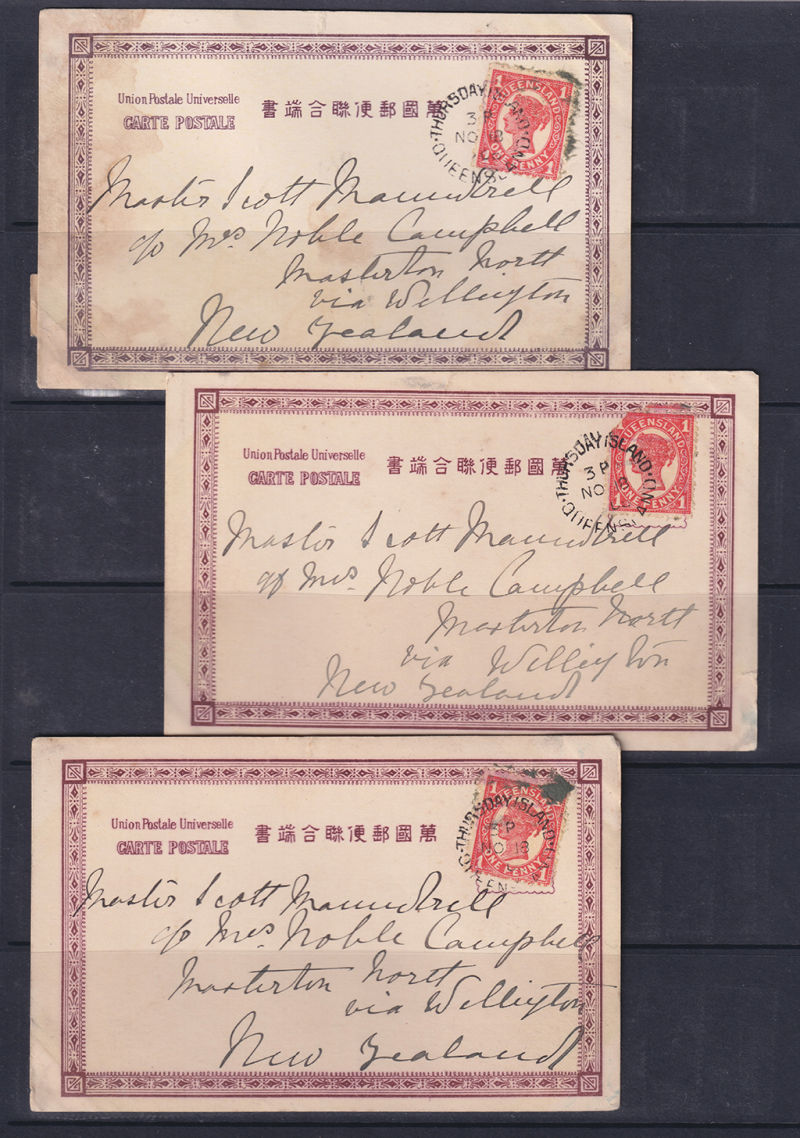 Union Postale Universelle
CARTE POSTALE
萬國郵便聯合端書
1 QUEENSLAND 1
1 ONE PENNY 1
THURSDAY ISLAND
3 P
NO 18
QUEENSLAND
Master Scott Maundrell
c/o Mrs Noble Campbell
Masterton North
via Wellington
New Zealand
Union Postale Universelle
CARTE POSTALE
萬國郵便聯合端書
QUEENSLAND 1
1 ONE PENNY 1
THURSDAY ISLAND
3 P
NO
QUEENSLAND
Master Scott Maundrell
c/o Mrs Noble Campbell
Masterton North
via Wellington
New Zealand
Union Postale Universelle
CARTE POSTALE
萬國郵便聯合端書
1 QUEENSLAND
1 ONE PENNY 1
THURSDAY ISLAND
3 P
NO 18
Master Scott Maundrell
c/o Mrs Noble Campbell
Masterton North
via Wellington
New Zealand